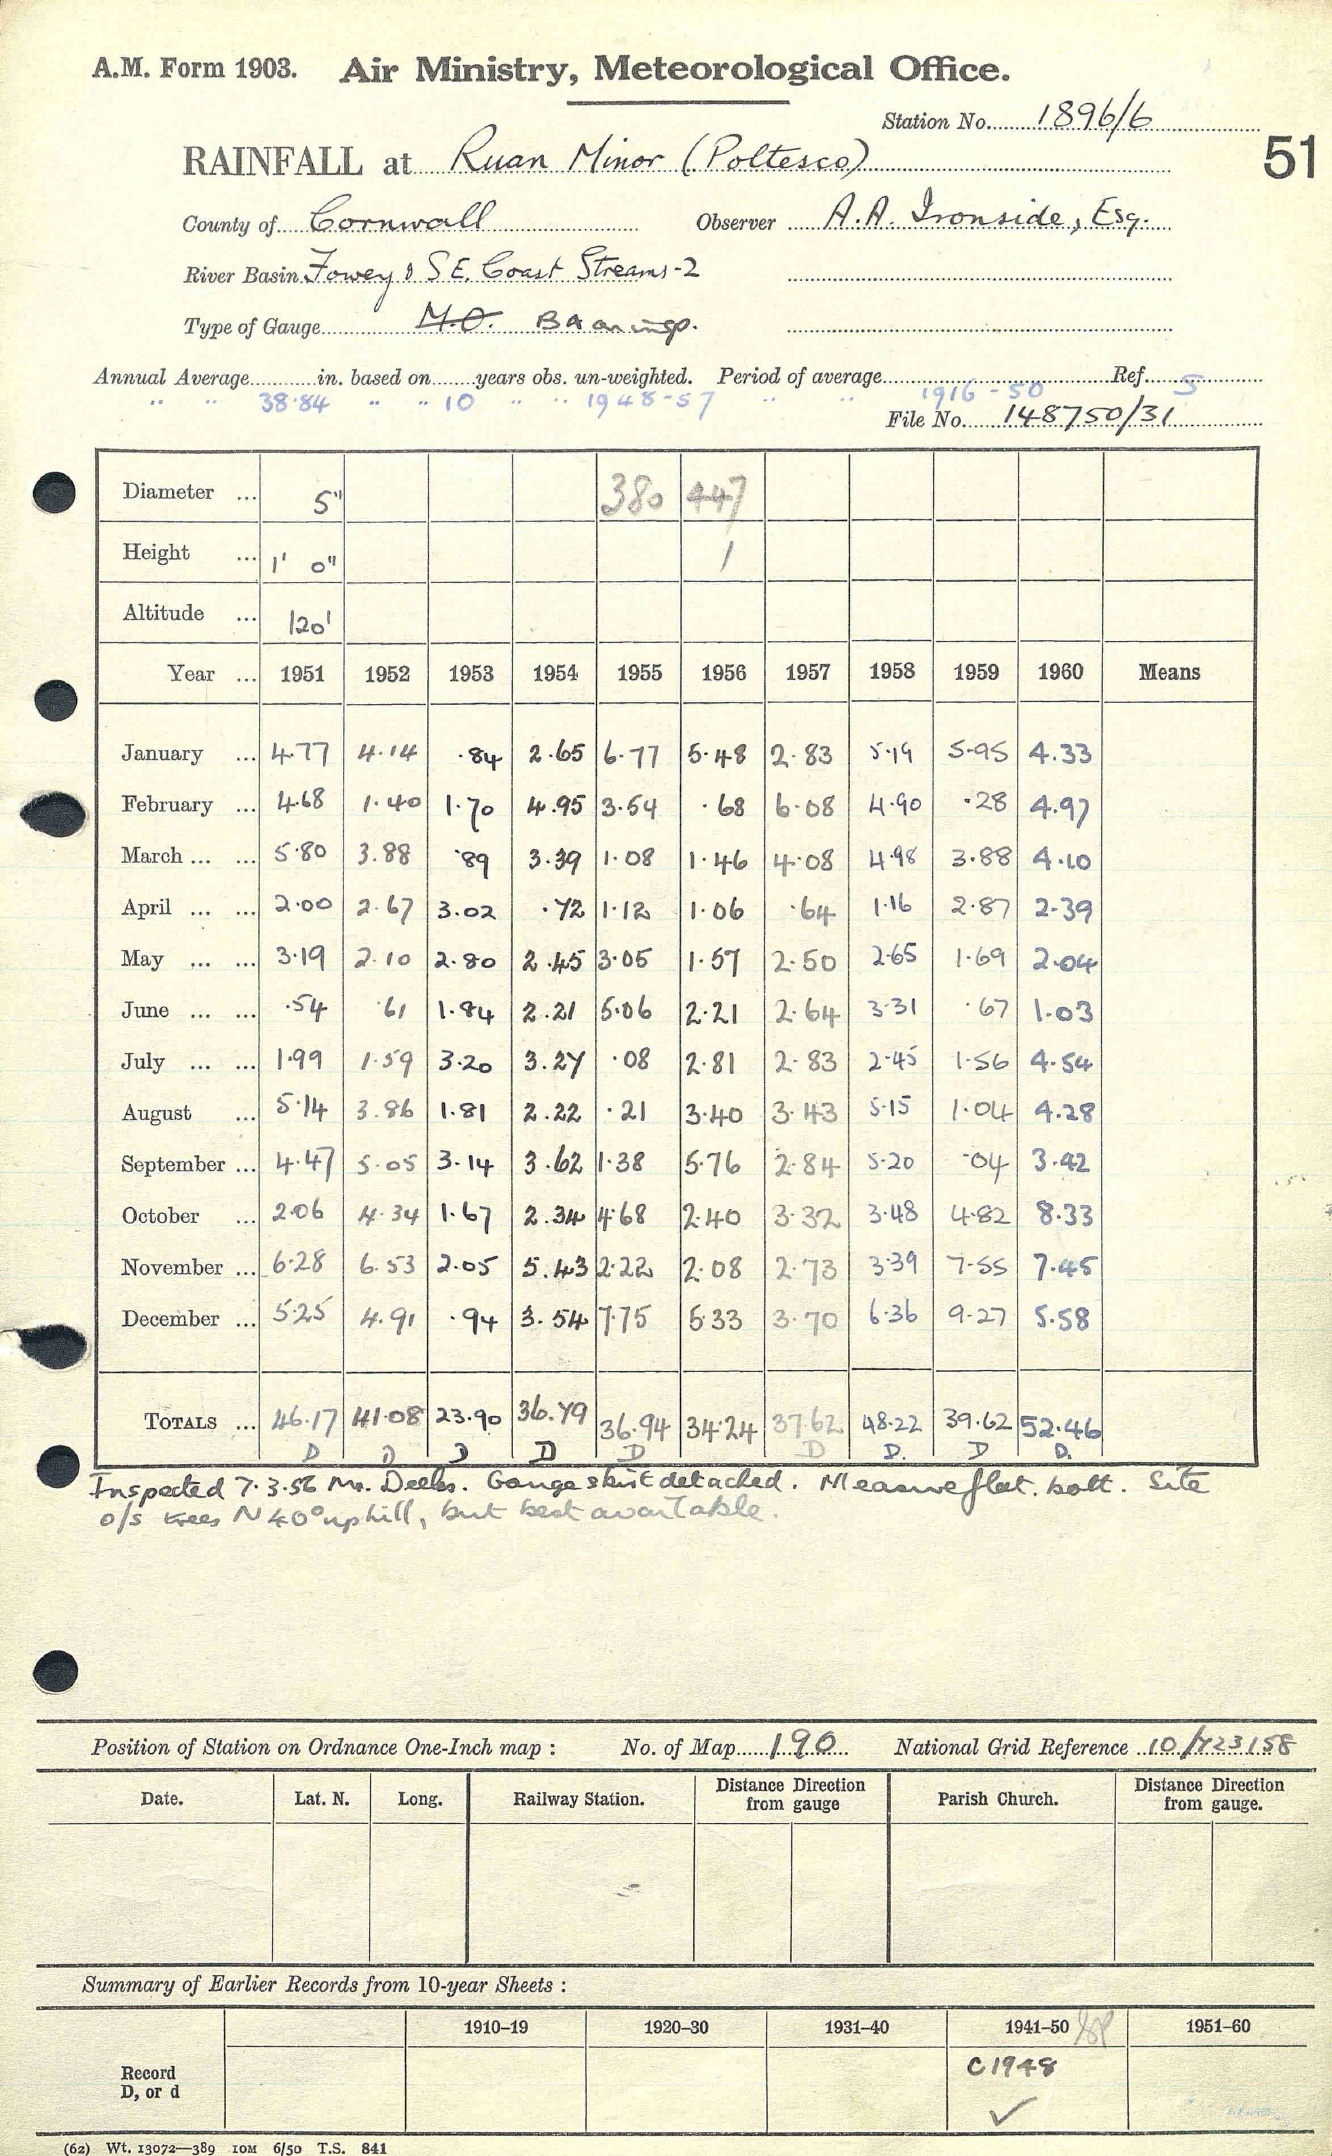 A.M. Form 1903. Air Ministry, Meteorological Office.
Station No. 1896/6
RAINFALL at Ruan Minor (Poltesco)
51
County of Cornwall Observer A.A. Ironside, Esq.
River Basin Fowey & S.E. Coast Streams-2
Type of Gauge M.O.
Annual Average in. based on years obs. un-weighted. Period of average Ref.
" " 38.84 " " 10 " " 1948-57 " " 1916-50 5
File No. 148750/31
Diameter ... 5" 380 447
Height ... 1' 0" 1
Altitude ... 120'
Year ... 1951 1952 1953 1954 1955 1956 1957 1958 1959 1960 Means
January ... 4.77 4.14 .84 2.65 6.77 5.48 2.83 5.19 5.95 4.33
February ... 4.68 1.40 1.70 4.95 3.54 .68 6.08 4.90 .28 4.97
March ... ... 5.80 3.88 .89 3.39 1.08 1.46 4.08 4.98 3.88 4.10
April ... ... 2.00 2.67 3.02 .72 1.12 1.06 .64 1.16 2.87 2.39
May ... ... 3.19 2.10 2.80 2.45 3.05 1.57 2.50 2.65 1.69 2.04
June ... ... .54 .61 1.84 2.21 5.06 2.21 2.64 3.31 .67 1.03
July ... ... 1.99 1.59 3.20 3.27 .08 2.81 2.83 2.45 1.56 4.54
August ... 5.14 3.86 1.81 2.22 .21 3.40 3.43 5.15 1.04 4.28
September ... 4.47 5.05 3.14 3.62 1.38 5.76 2.84 5.20 .04 3.42
October ... 2.06 4.34 1.67 2.34 4.68 2.40 3.32 3.48 4.82 8.33
November ... 6.28 6.53 2.05 5.43 2.22 2.08 2.73 3.39 7.55 7.45
December ... 5.25 4.91 .94 3.54 7.75 5.33 3.70 6.36 9.27 5.58
TOTALS ... 46.17 41.08 23.90 36.79 36.94 34.24 37.62 48.22 39.62 52.46
D D D D D D D. D D.
Inspected 7.3.56 Mr. Deeks. Gauge skirt detached. Measure flat. bott. Site
o/s trees N 40° uphill, but best available.
Position of Station on Ordnance One-Inch map : No. of Map 190 National Grid Reference 10/723158
Date. Lat. N. Long. Railway Station. Distance Direction from gauge Parish Church. Distance Direction from gauge.
Summary of Earlier Records from 10-year Sheets :
1910–19 1920–30 1931–40 1941–50 1951–60
Record
D, or d
C1948
(62) Wt. 13072—389 10M 6/50 T.S. 841